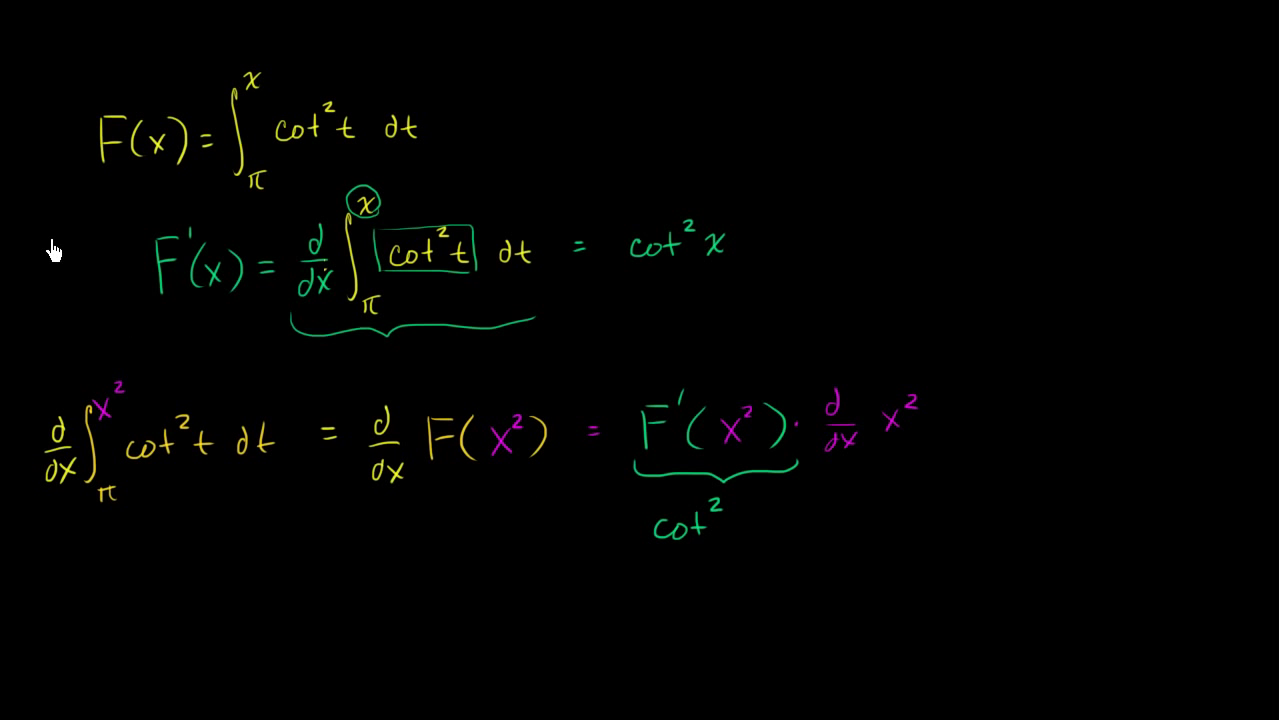 F(x) = ∫_π^x cot² t dt
F'(x) = d/dx ∫_π^x cot² t dt = cot² x
d/dx ∫_π^x² cot² t dt = d/dx F(x²) = F'(x²) · d/dx x²
cot²